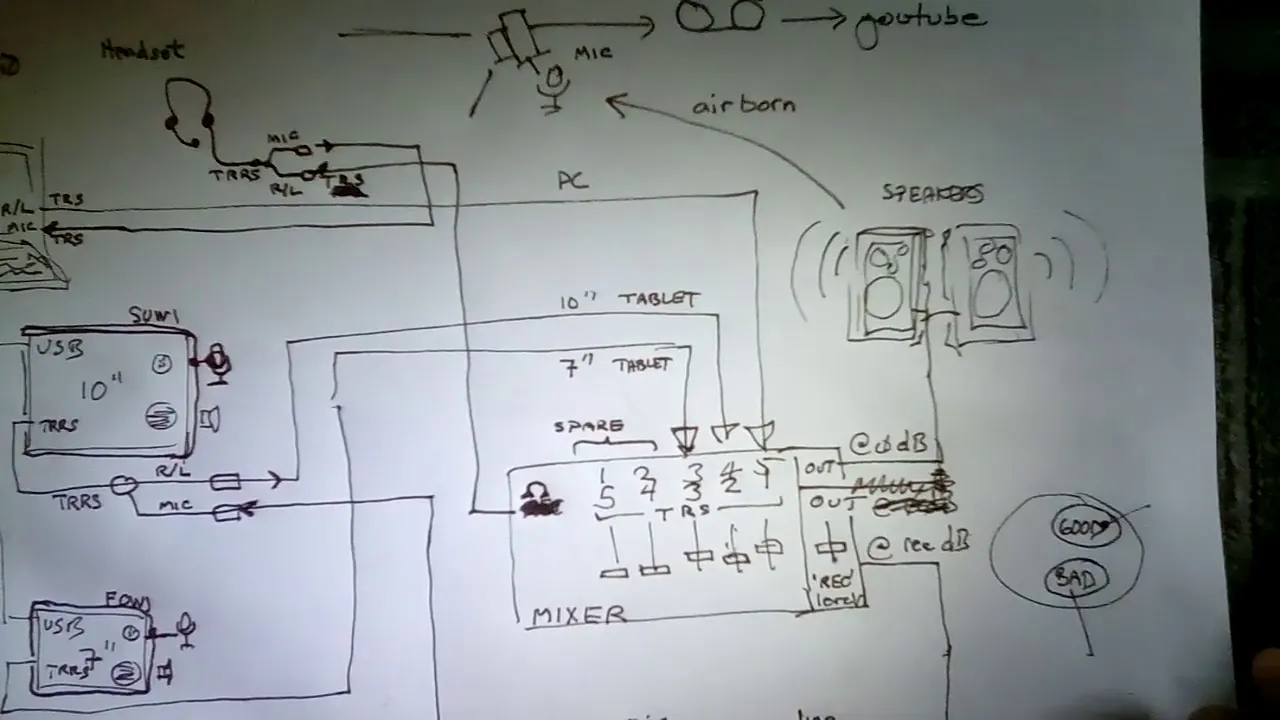 Headset
MIC
youtube
airborn
MIC
TRRS
R/L
TRS
PC
SPEAKERS
R/L
TRS
MIC
TRS
10" TABLET
7" TABLET
SUW1
USB
10"
TRRS
R/L
TRRS
MIC
SPARE
1 2 3 4 5
5 4 3 2 1
TRS
OUT
@ 0 dB
OUT
@ rec dB
'REC'
level
MIXER
GOOD
BAD
USB
7"
TRRS